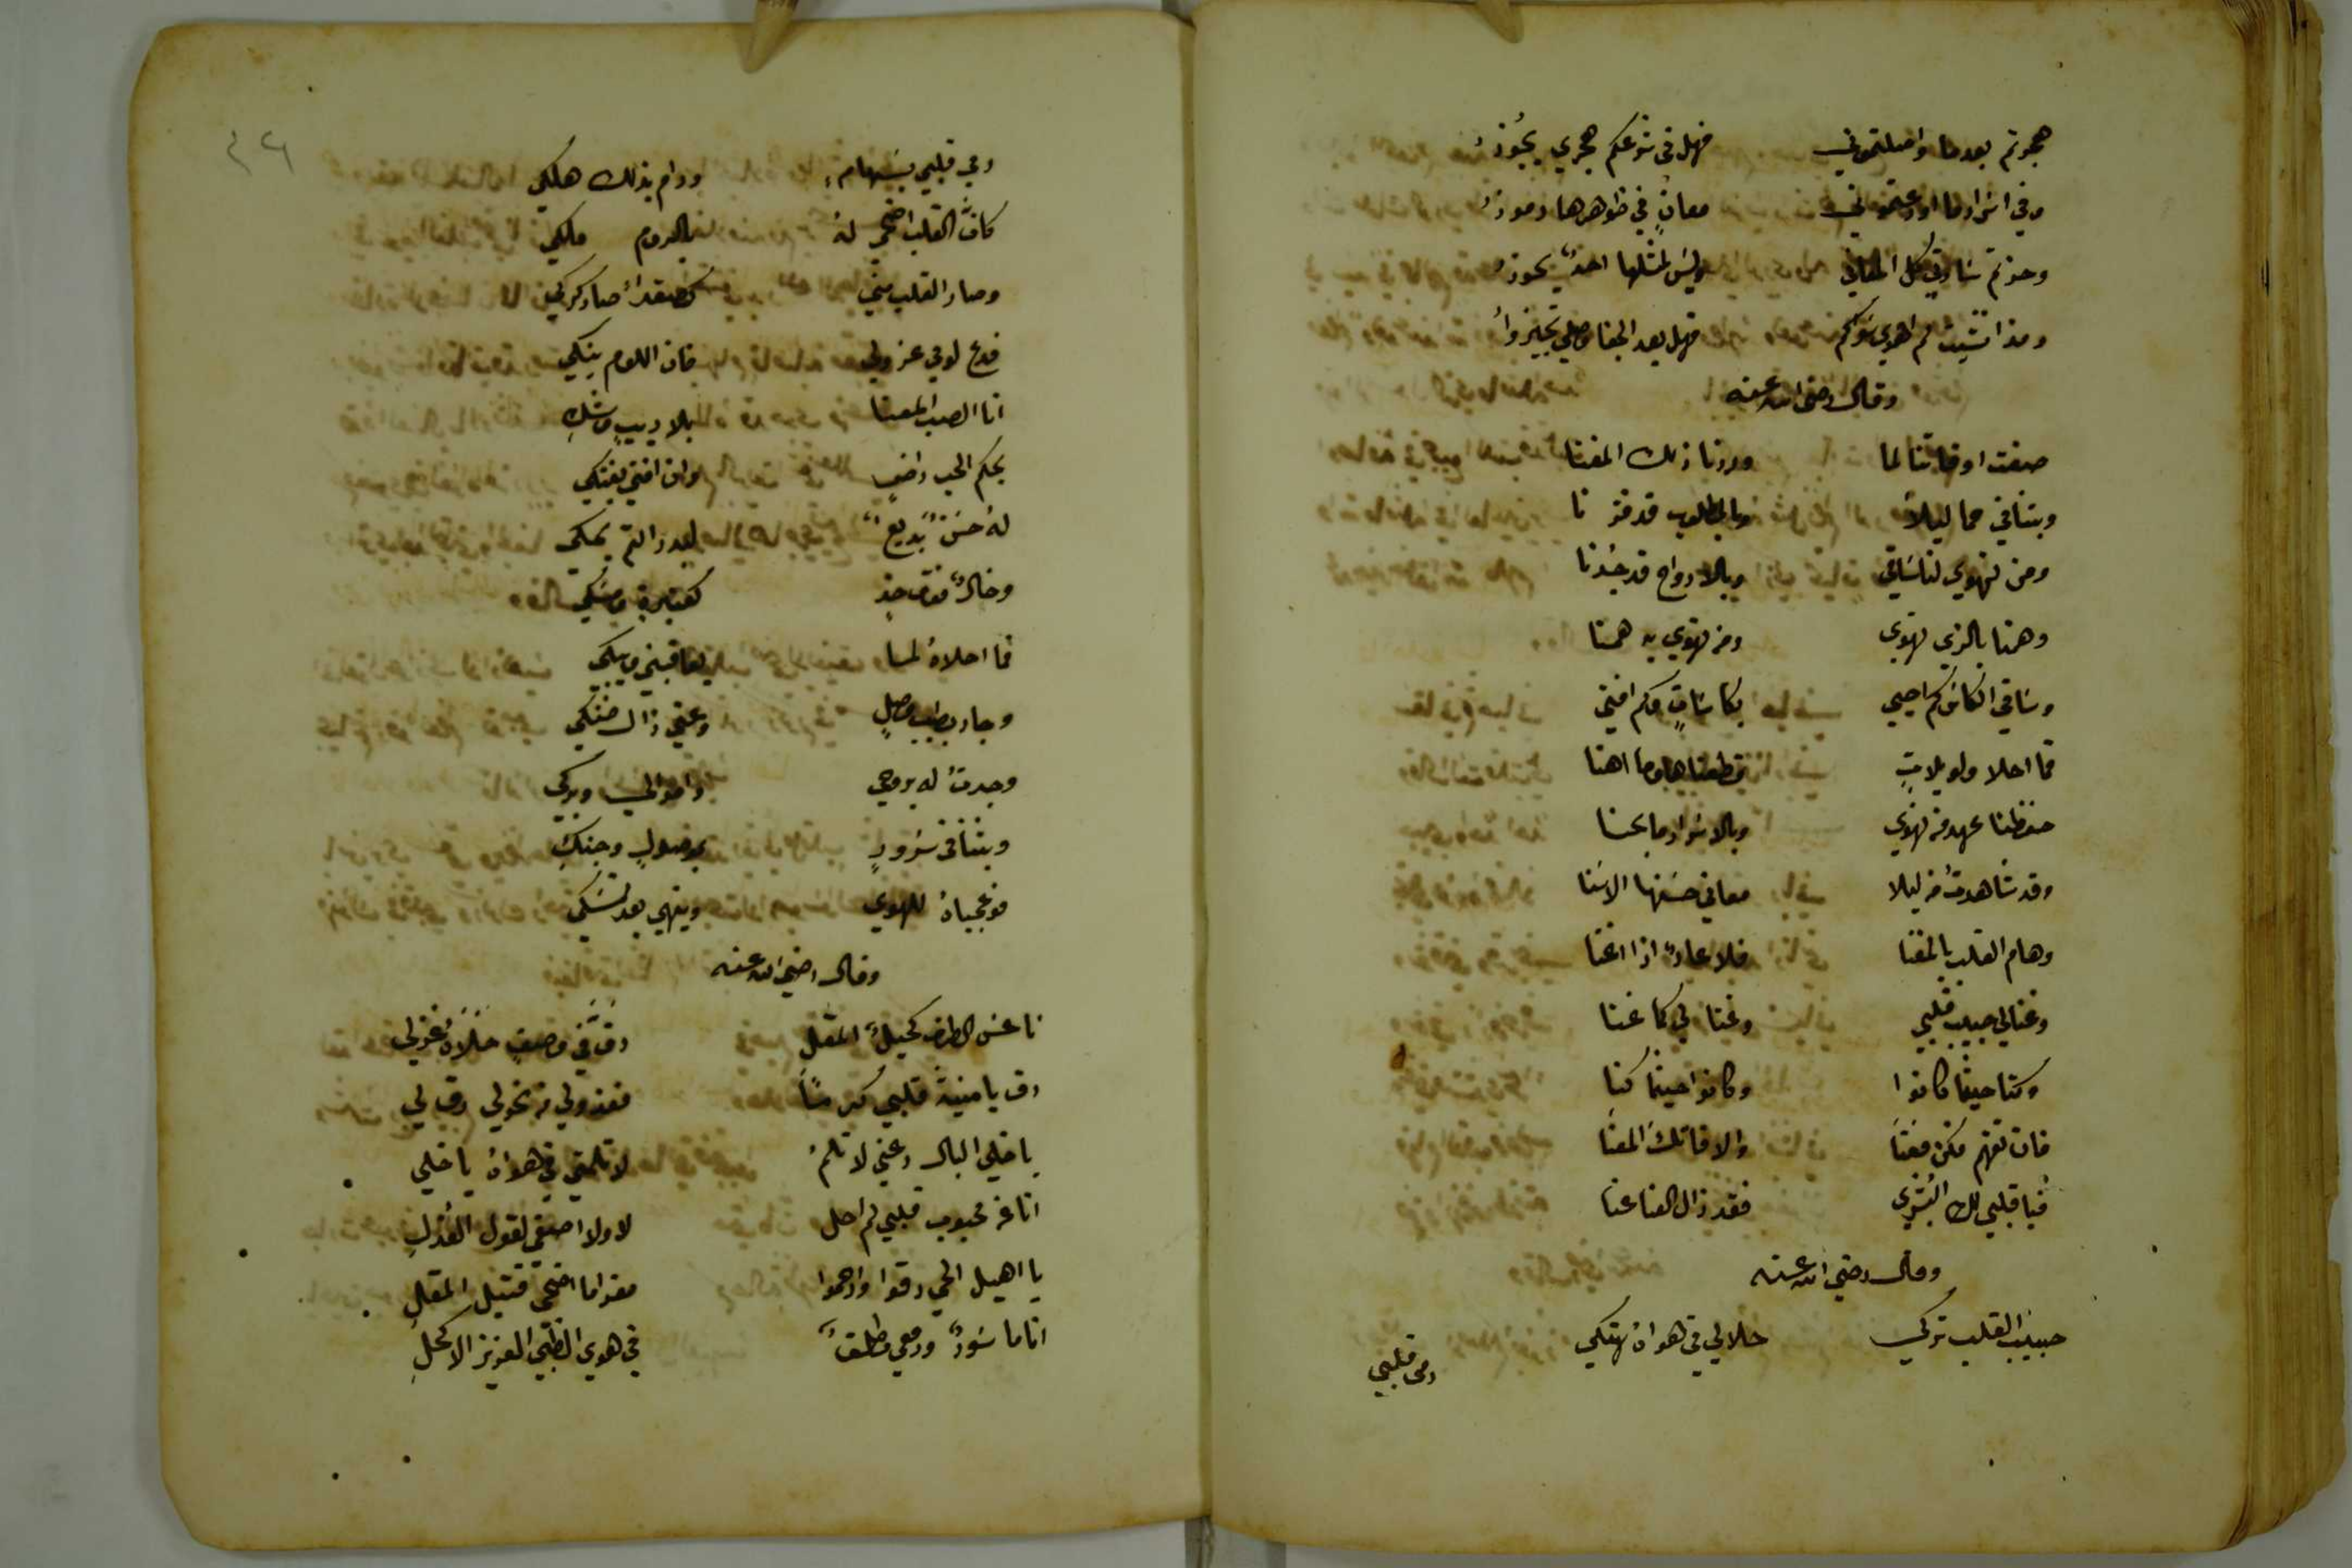 هجرتم بعدما واصلتموني فهل في شرعكم هجري يجوز
وفي اسراركم اودعتموني معانٍ في ظواهرها رموز
وحزتم سادتي كل المعاني وليس لمثلها احدٌ يحوز
ومذ انشيت لم اهوى سواكم فهل بعد الجفا وصلي تجيزوا
وقال رضي الله عنه
صفت اوقاتنا لما وردنا ذلك المغنا
وبتنا في حما ليلا وبالمطلوب قد فزنا
ومن نهوى لنا ساقي وبالارواح قد جدنا
وهمنا بالذي نهوى ومن نهوى به همنا
وساقي الكاس كم احيى بكاساتٍ وكم افنى
فما احلا ولويلاتٍ قطعناها وما اهنا
حفظنا عهد من نهوى وبالاسرار ما بحنا
وقد شاهدت من ليلا معاني حسنها الاسنا
وهام القلب بالمغنا فلا عارٌ اذا اغنا
وغنالي حبيب قلبي وغنا لي كما غنا
وكنا حيثما كانوا وكانوا حيثما كنا
فان تفهم فكن معنا والا فاترك المغنا
فيا قلبي لك البشرى فقد زال العنا عنا
وقال رضي الله عنه
حبيب القلب تركي حلالي في هواه هتكي
رمى قلبي
٤٦
رمى قلبي بسهام ورام بذلك هلكي
كان القلب اضحى له بالروم ملكي
وصار القلب مني كصقدا صار كركي
فدع لومي عزولي فان اللوم ينكي
انا الصب المعنا بلا ريبٍ وشكِ
بحكم الحب راضي وان افتى بفتكي
له حسنٌ بديعٌ لبدر التم يحكي
وخالٌ فوق خدٍ كعنبرة ومسكي
فما احلاه لما يعاقبني ويبكي
وجاد بطيب وصلٍ وعني زال ضنكي
وجدت له بروحي واموالي وبركي
وبتنا في سرورٍ بموصولٍ وجنكِ
فوعجباه للهوى وينهي بعد نسكي
وقال رضي الله عنه
ناعس الطرف كحيل المقل رق في وصف حلاه غزلي
رق يا منية قلبي كرمًا فعذولي من نحولي رق لي
يا خلي البال دعني لا تلم لا تلمني في هواه يا خلي
انا عن محبوب قلبي لم احل لا ولا اصغى لقول العذل
يا اهيل الحي رقوا وارحموا مغراما اضحى قتيل المقل
انا ماسورٌ ودمعي مطلقٌ في هوى الظبي العزيز الاكحل